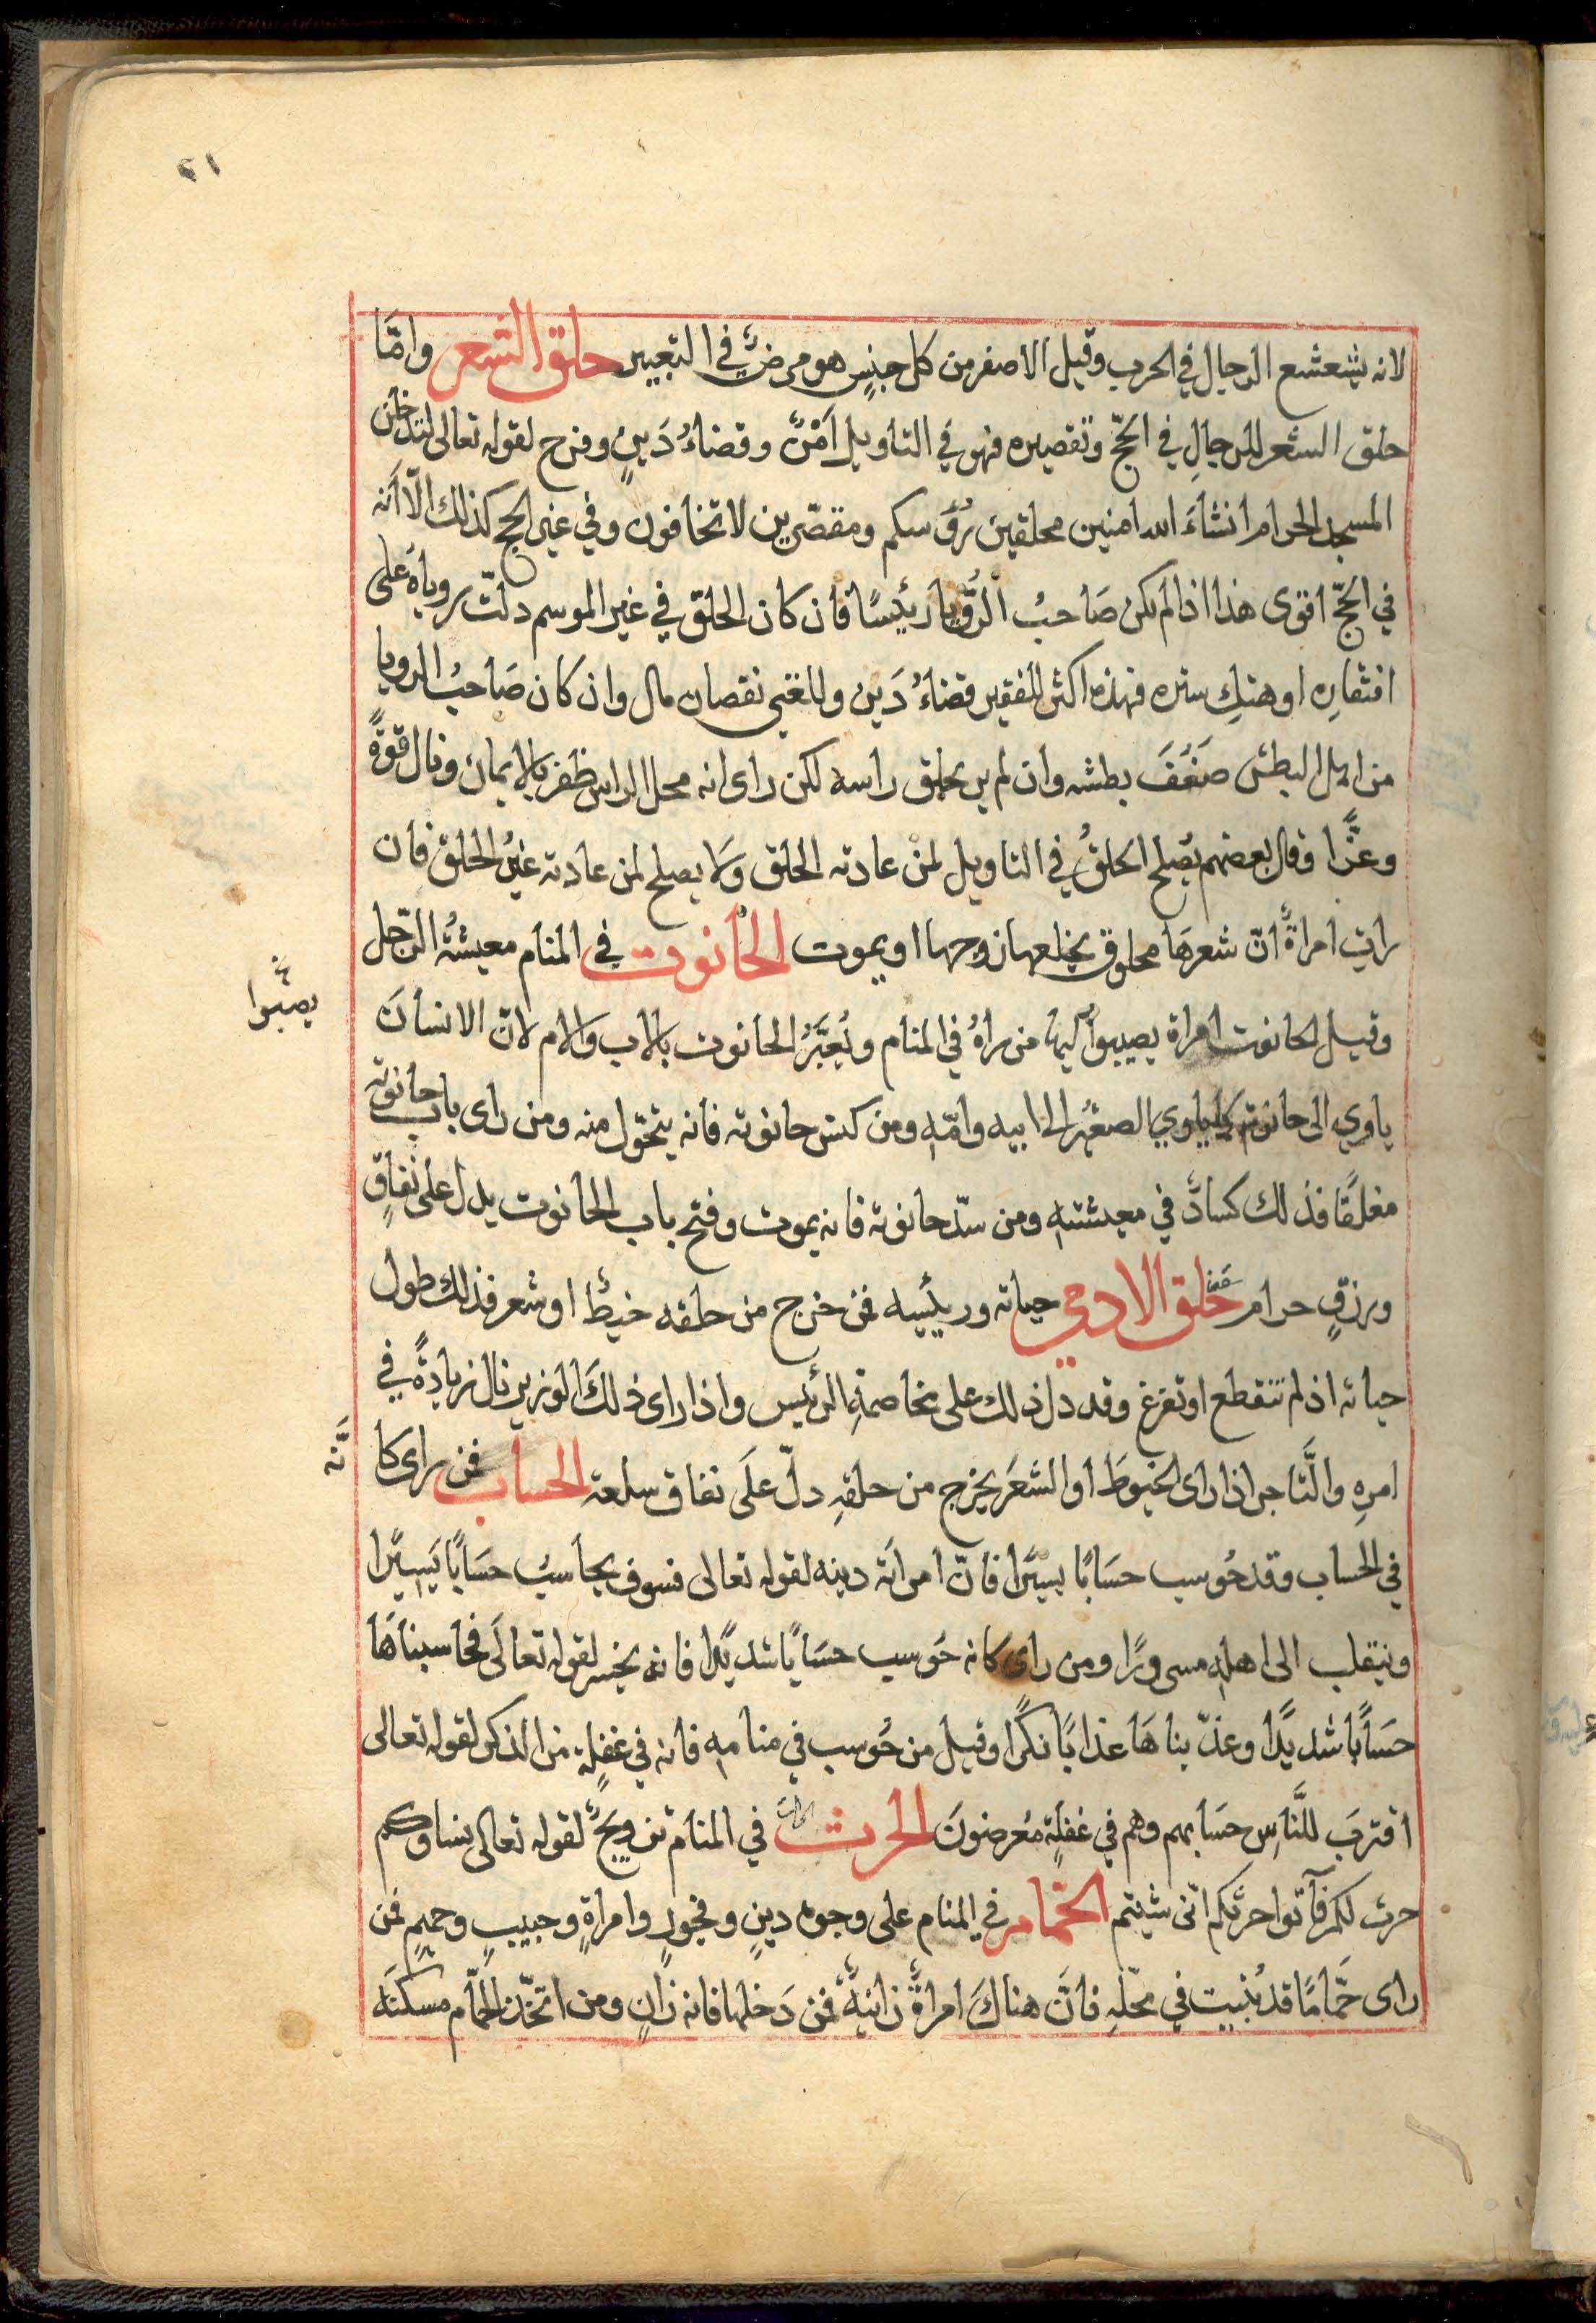 ٢١
لانه يشعشع الرجال في الحرب وقيل الاصفر من كل جنسٍ هو مرضٌ في التعبير حلق الشعر وامّا
حلق الشعر للرجالِ في الحَجّ وتقصيره فهو في التاويل اَمْنٌ وقضاءُ دَينٍ وفرح لقوله تعالى لتدخلن
المسجد الحرام انشاءَ الله امنين محلقين رُؤسكم ومقصّرين لا تخافون وفي غير الحج كذلك الّا اَنه
في الحَجّ اقوى هذا اذا لم يكن صَاحبُ الرُّؤيا رئيسًا فان كان الحلق في غير الموسم دلّت روياهُ على
افتقارِه او هتكِ ستره فهذه اكثر للفقير قضاءُ دَين وللغني نقصان مال وان كان صَاحبُ الرويا
من اهل البطش ضَعُفَ بطشه وان لم ير يحلق راسه لكن راى انه محلل الراس ظفر بالايمان ونال قوةً
وعزًّا وقال بعضهم يصلح الحلقُ في التاويل لمنْ عادته الحلق وَلا يصلح لمن عادته غيرُ الحلق فان
رات امراةٌ انّ شعرهَا محلوق يخلعها زوجها او يموت الحانوت في المنام معيشةُ الرّجل
وقيل الحانوت امراة يصيبوا اليها من راهُ في المنام ويُعبَّرُ الحانوت بالاب والام لانّ الانسانَ
يصبوا
ياوي الى حانوته كما ياوي الصغير الى ابيه وامّه ومن كنس حانوته فانه يتحوّل منه ومن راى باب حانوته
مغلقًا فذلك كسادٌ في معيشته ومن سدّ حانوته فانه يموت وفتح باب الحانوت يدل على نفاقٍ
ورزقٍ حرام حلق الادمي حياته ورئيسه فمن خرج من حلقه خيطٌ او شعر فذلك طول
حياته اذ لم تنقطع او تفرغ وقد دل ذلك على مخاصمةِ الرئيس واذا راى ذلكَ الوزير نال زيادةً في
امرهِ والتَّاجر اذا راى الخيوطَ او الشعرَ يخرج من حلقهِ دلّ علَى نفاق سلعته الحساب فمن راى كا
نَّه
في الحساب وقد حُوسب حسَابًا يسيرًا فانّ امراتَه دينه لقوله تعالى فسوف يحاسبُ حسَابًا يَسِيْرًا
وينقلب الى اهله مسرورًا ومن راى كانه حوُسب حسَابًا شديدًا فانه يخسر لقوله تعالَى فحاسبناهَا
حسَابًا شديدًا وعذّبناهَا عذابًا نكرًا وقيل من حُوسب في منامه فانه في غفلةٍ من الذكر لقوله تعالى
اقتربَ للنَّاسِ حسَابهم وهم في غفلةٍ مُعرضونَ الحرث في المنام تزويجٌ لقوله تعالى نساوكم
حرث لكم فاتوا حرثكم انّى شيتم الحمّام في المنام على وجوه دينٍ وفجورٍ وامراةٍ وحبيبٍ وحميمٍ فمن
راى حمَّامًا قد بُنيت في محلّهِ فانَّ هناكَ امراةٌ زانيةٌ فمن دَخلها فانه زانٍ ومن اتخذ الحمّام مسكنَه